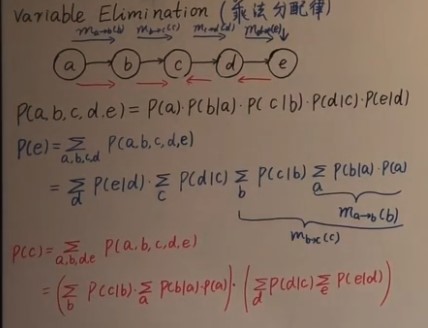 Variable Elimination (乘法分配律)
m_{a→b}(b) m_{b→c}(c) m_{c→d}(d) m_{d→e}(e)
a b c d e
P(a,b,c,d.e) = P(a)·P(b|a)·P(c|b)·P(d|c)·P(e|d)
P(e) = ∑_{a,b,c,d} P(a,b,c,d,e)
= ∑_d P(e|d)·∑_c P(d|c) ∑_b P(c|b) ∑_a P(b|a)·P(a)
m_{a→b}(b)
m_{b→c}(c)
P(c) = ∑_{a,b,d,e} P(a,b,c,d,e)
= (∑_b P(c|b)·∑_a P(b|a)·P(a))·(∑_d P(d|c) ∑_e P(e|d))